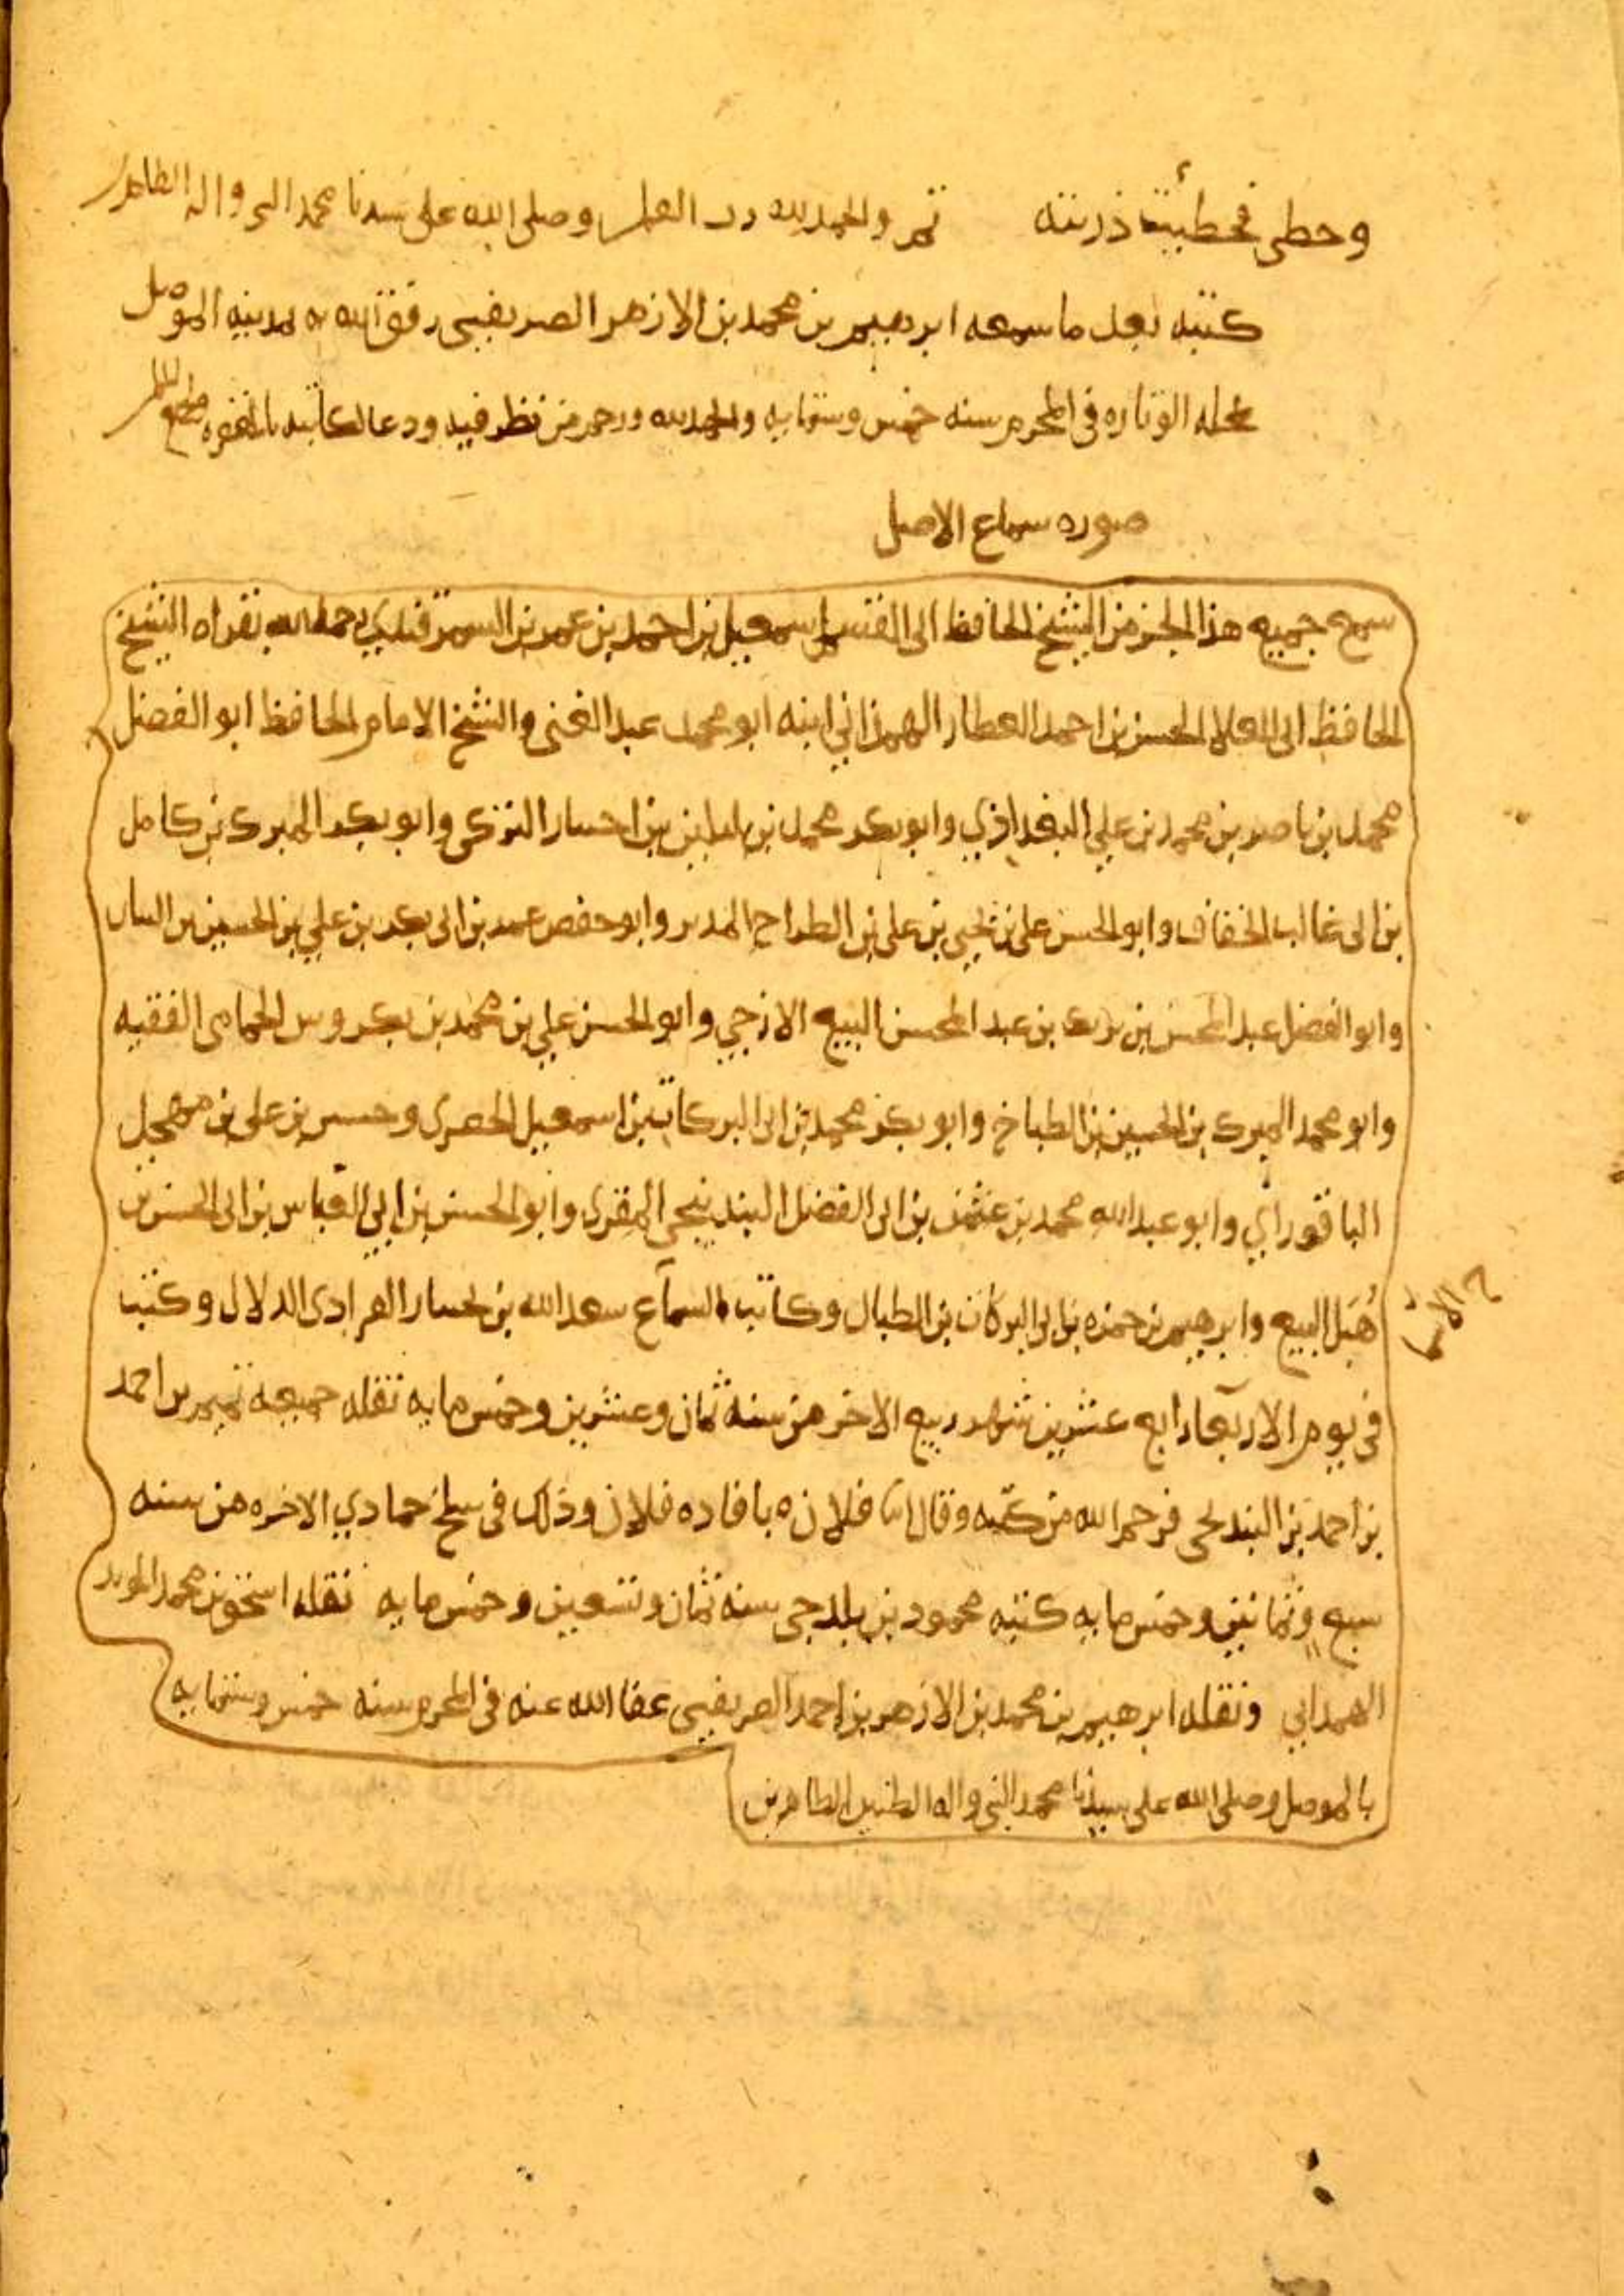 وخطى فخطيت ذريته تم والحمد لله رب العلمين وصلى الله على سيدنا محمد النبي واله الطاهرين
كتبه بعد ما سمعه ابرهيم بن محمد بن الازهر الصريفيني رفق الله به بمدينه الموصل
في المحرم سنه خمس وستمايه والحمد لله ورحم من نظر فيه ودعا لكاتبه بالمغفره
صوره سماع الاصل
سمع جميع هذا الجز من الشيخ الحافظ ابي القسم اسمعيل بن احمد بن عمر بن السمرقندي رحمه الله بقراه الشيخ
الحافظ ابي العلا الحسن بن احمد العطار الهمذاني ابنه ابو محمد عبد الغني والشيخ الامام الحافظ ابو الفضل
محمد بن ناصر بن محمد بن علي البغداذي وابو بكر محمد بن بن التركي وابو بكر المبرك بن كامل
بن ابي غالب الخفاف وابو الحسن علي بن يحيى بن علي بن الطراح المدير وابو حفص عمر بن ابي بكر بن علي بن الحسين بن
وابو الفضل عبد المحسن بن بن عبد المحسن البيع الازجي وابو الحسن علي بن محمد بن بكروس الحمامي الفقيه
وابو محمد المبرك بن الحسين بن الطباخ وابو بكر محمد بن ابي البركات بن اسمعيل الحصري وحسين بن علي بن مهجل
الباقدراي وابو عبد الله محمد بن عثمن بن ابي الفضل البندنيجي المقري وابو الحسن بن ابي العباس بن ابي الحسن بن
هبل البيع وابرهيم بن حمزه بن ابي البركات بن الطبال وكاتب السماع سعد الله بن الدلال وكتب
في يوم الاربعا رابع عشرين شهر ربيع الاخر من سنة ثمان وعشرين وخمس مايه نقله جميعه تميم بن احمد
بن احمد بن البندنيجي فرحم الله من كتبه وقال انا فلان بافاده فلان وذلك في سلخ جمادي الاخره من سنه
سبع وثمانين وخمس مايه كتبه محمود بن سنه ثمان وتسعين وخمس مايه نقله اسحق بن محمد المويد
الهمداني ونقله ابرهيم بن محمد بن الازهر بن احمد الصريفيني عفا الله عنه في المحرم سنه خمس وستمايه
بالموصل وصلى الله على سيدنا محمد النبي واله الطيبين الطاهرين